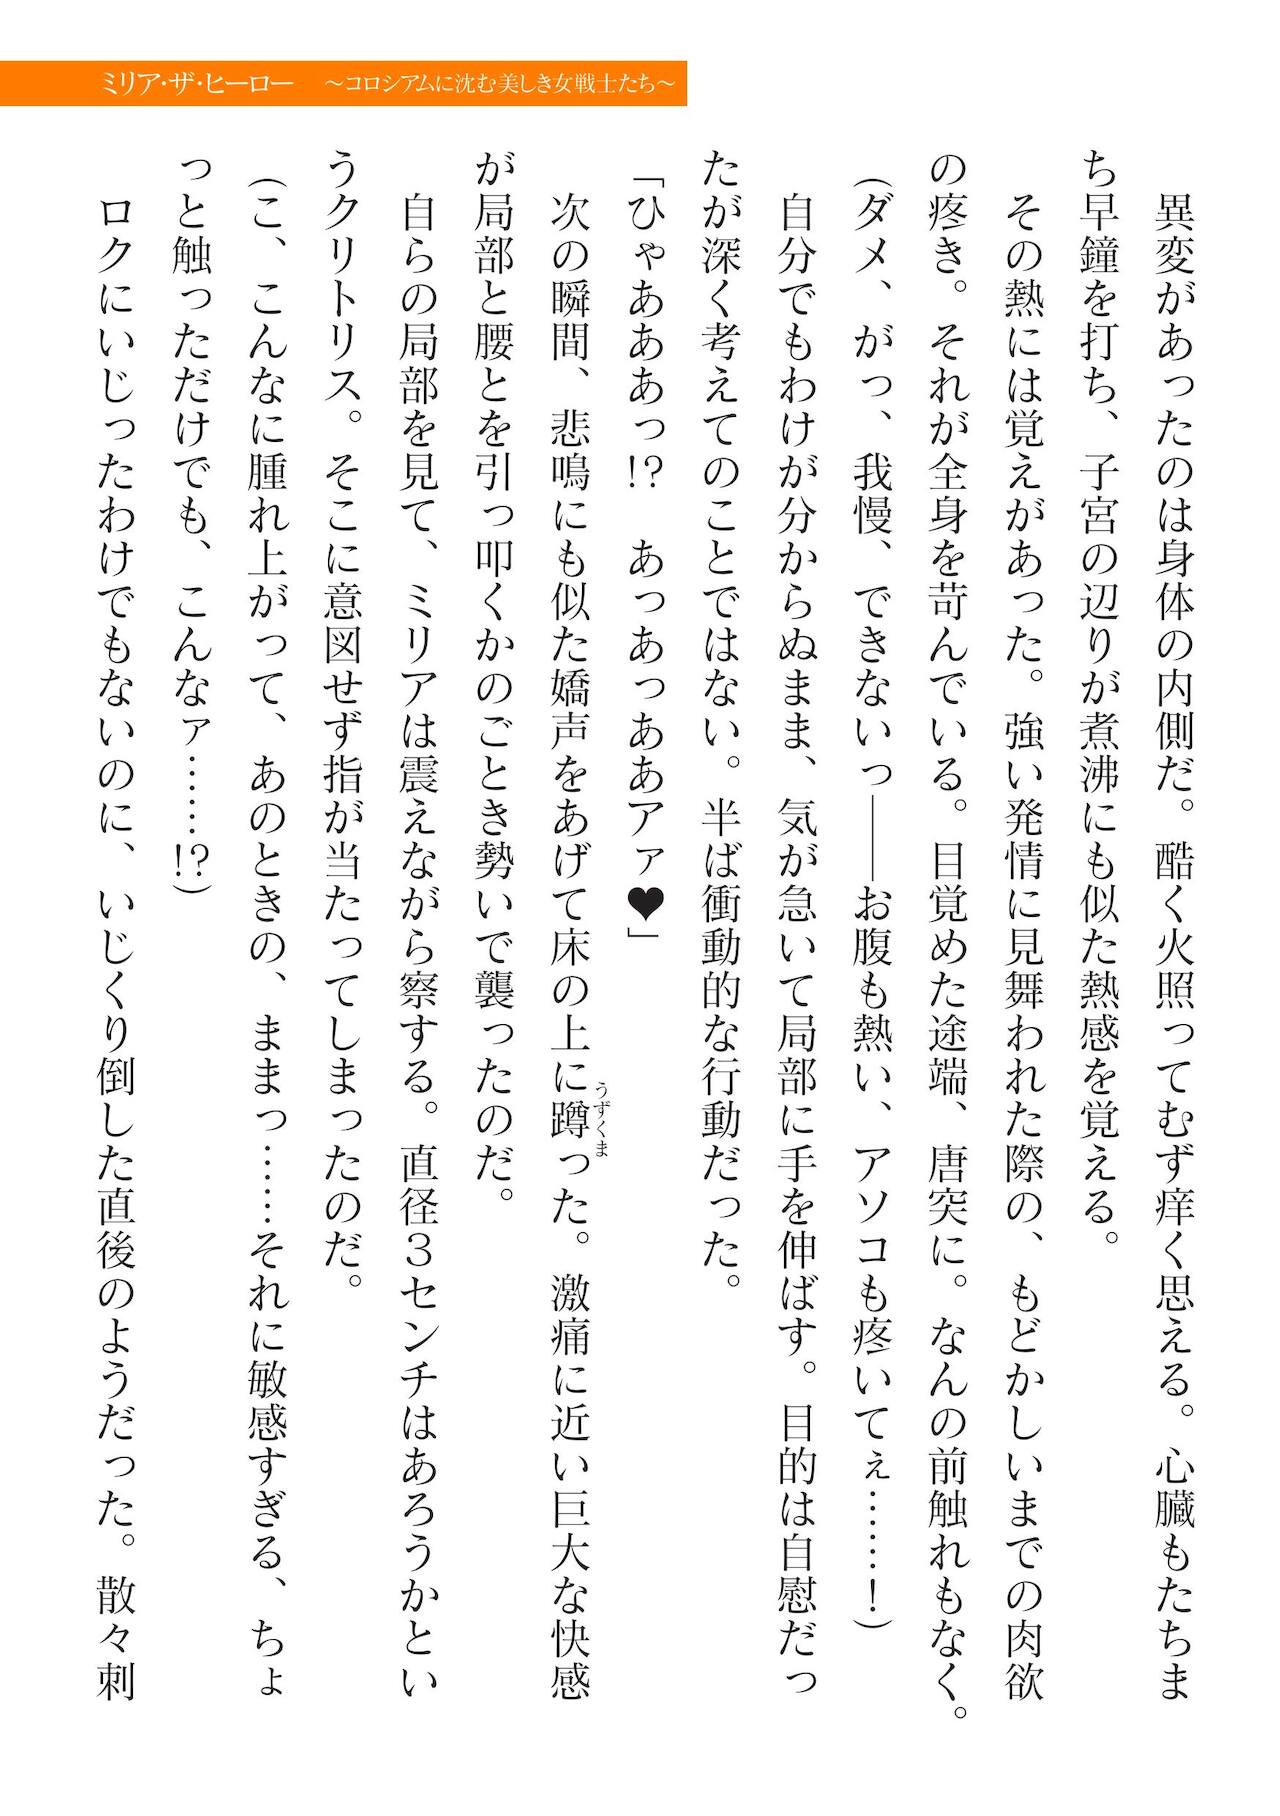 ミリア・ザ・ヒーロー　～コロシアムに沈む美しき女戦士たち～
　異変があったのは身体の内側だ。酷く火照ってむず痒く思える。心臓もたちま
ち早鐘を打ち、子宮の辺りが煮沸にも似た熱感を覚える。
　その熱には覚えがあった。強い発情に見舞われた際の、もどかしいまでの肉欲
の疼き。それが全身を苛んでいる。目覚めた途端、唐突に。なんの前触れもなく。
（ダメ、がっ、我慢、できないっ――お腹も熱い、アソコも疼いてぇ……！）
　自分でもわけが分からぬまま、気が急いて局部に手を伸ばす。目的は自慰だっ
たが深く考えてのことではない。半ば衝動的な行動だった。
「ひゃあああっ!?　あっあっああアァ♥」
　次の瞬間、悲鳴にも似た嬌声をあげて床の上に蹲った。激痛に近い巨大な快感
うずくま
が局部と腰とを引っ叩くかのごとき勢いで襲ったのだ。
　自らの局部を見て、ミリアは震えながら察する。直径３センチはあろうかとい
うクリトリス。そこに意図せず指が当たってしまったのだ。
（こ、こんなに腫れ上がって、あのときの、ままっ……それに敏感すぎる、ちょ
っと触っただけでも、こんなァ……!?）
　ロクにいじったわけでもないのに、いじくり倒した直後のようだった。散々刺